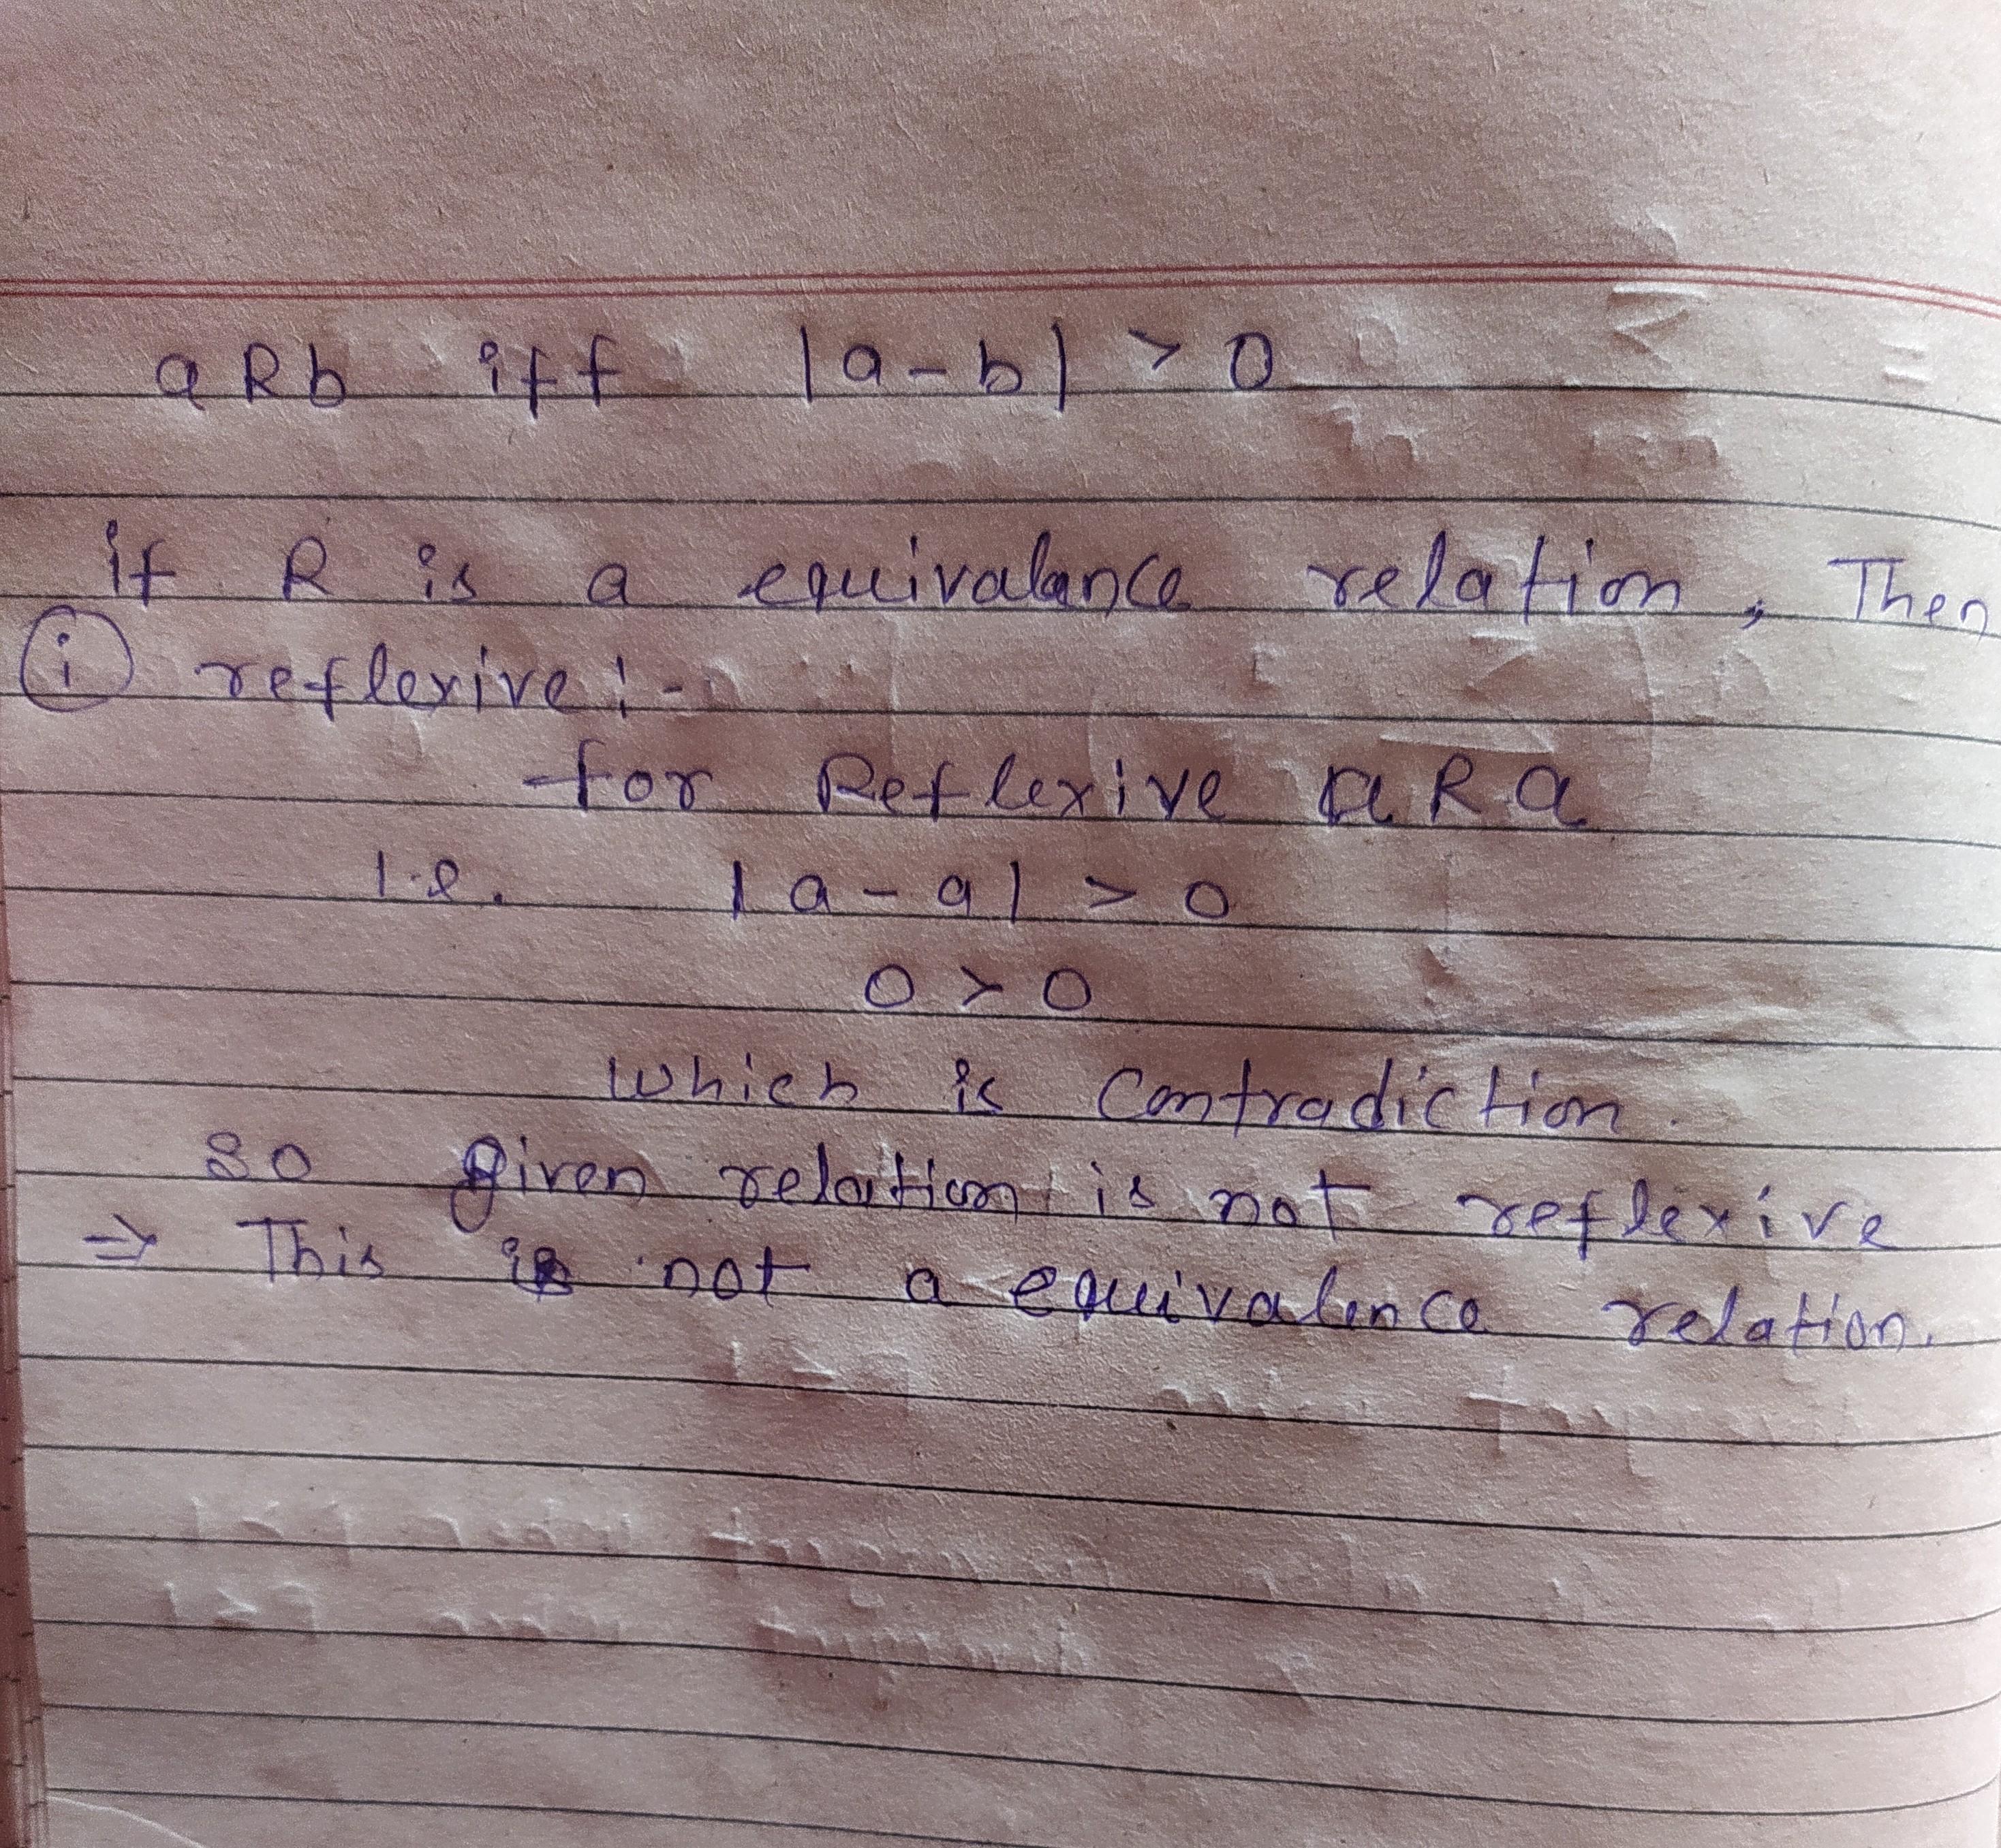 aRb iff |a-b| > 0
if R is a equivalance relation, Then
(i) reflexive :-
for Reflexive aRa
i.e. |a-a| > 0
0 > 0
which is contradiction.
so given relation is not reflexive
⇒ This is not a equivalence relation.